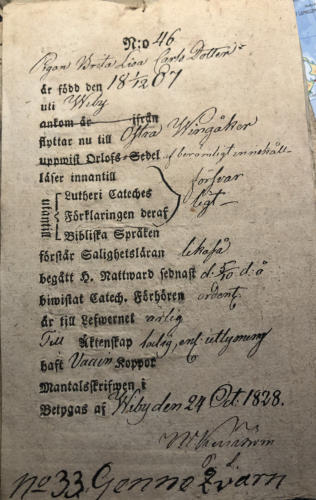 N:o 46
Pigan Brita Lisa Carls Dotter
är född den 18 1/12 07
uti Weby
ankom år ifrån
flyttar nu till Östra Wingåker
uppwist Orlofs-Sedel af beromligt innehåll
läser innantill försvar
utantill
Lutheri Cateches ligt
Förklaringen deraf
Bibliska Språken
förstår Salighetsläran lekaså
begått H. Nattward sednast d. d. å
biwistat Catech. Förhören ordent
är till Lefwernet ärlig
Till Äktenskap ledig, enl. utlysning
haft Vaccin Koppor
Mantalskrifwen i
Betygas af Weby den 24 Oct. 1828.
No 33. Genneqvarn